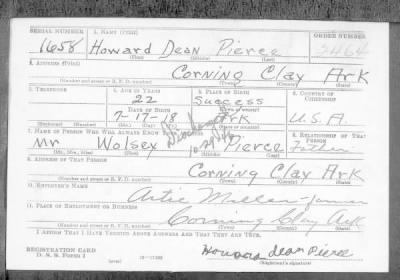 SERIAL NUMBER 1. NAME (PRINT) ORDER NUMBER
1658 Howard Dean Pierce 2464
(First) (Middle) (Last)
2. ADDRESS (PRINT)
Corning Clay Ark
(Number and street or R. F. D. number) (Town) (County) (State)
3. TELEPHONE 4. AGE IN YEARS 5. PLACE OF BIRTH 6. COUNTRY OF CITIZENSHIP
22 Success
DATE OF BIRTH
7-17-18 Ark U.S.A.
7. NAME OF PERSON WHO WILL ALWAYS KNOW 8. RELATIONSHIP OF THAT PERSON
Discharged
Mr Wolsey Pierce Father
(Mr., Mrs., Miss) (First) (Middle) (Last)
9. ADDRESS OF THAT PERSON
Corning Clay Ark
(Number and street or R. F. D. number) (Town) (County) (State)
10. EMPLOYER'S NAME
Artie Miller-farmer
11. PLACE OF EMPLOYMENT OR BUSINESS
Corning Clay Ark
(Number and street or R. F. D. number) (Town) (County) (State)
I AFFIRM THAT I HAVE VERIFIED ABOVE ANSWERS AND THAT THEY ARE TRUE.
REGISTRATION CARD
D. S. S. Form 1 (over) Howard Dean Pierce
(Registrant's signature)